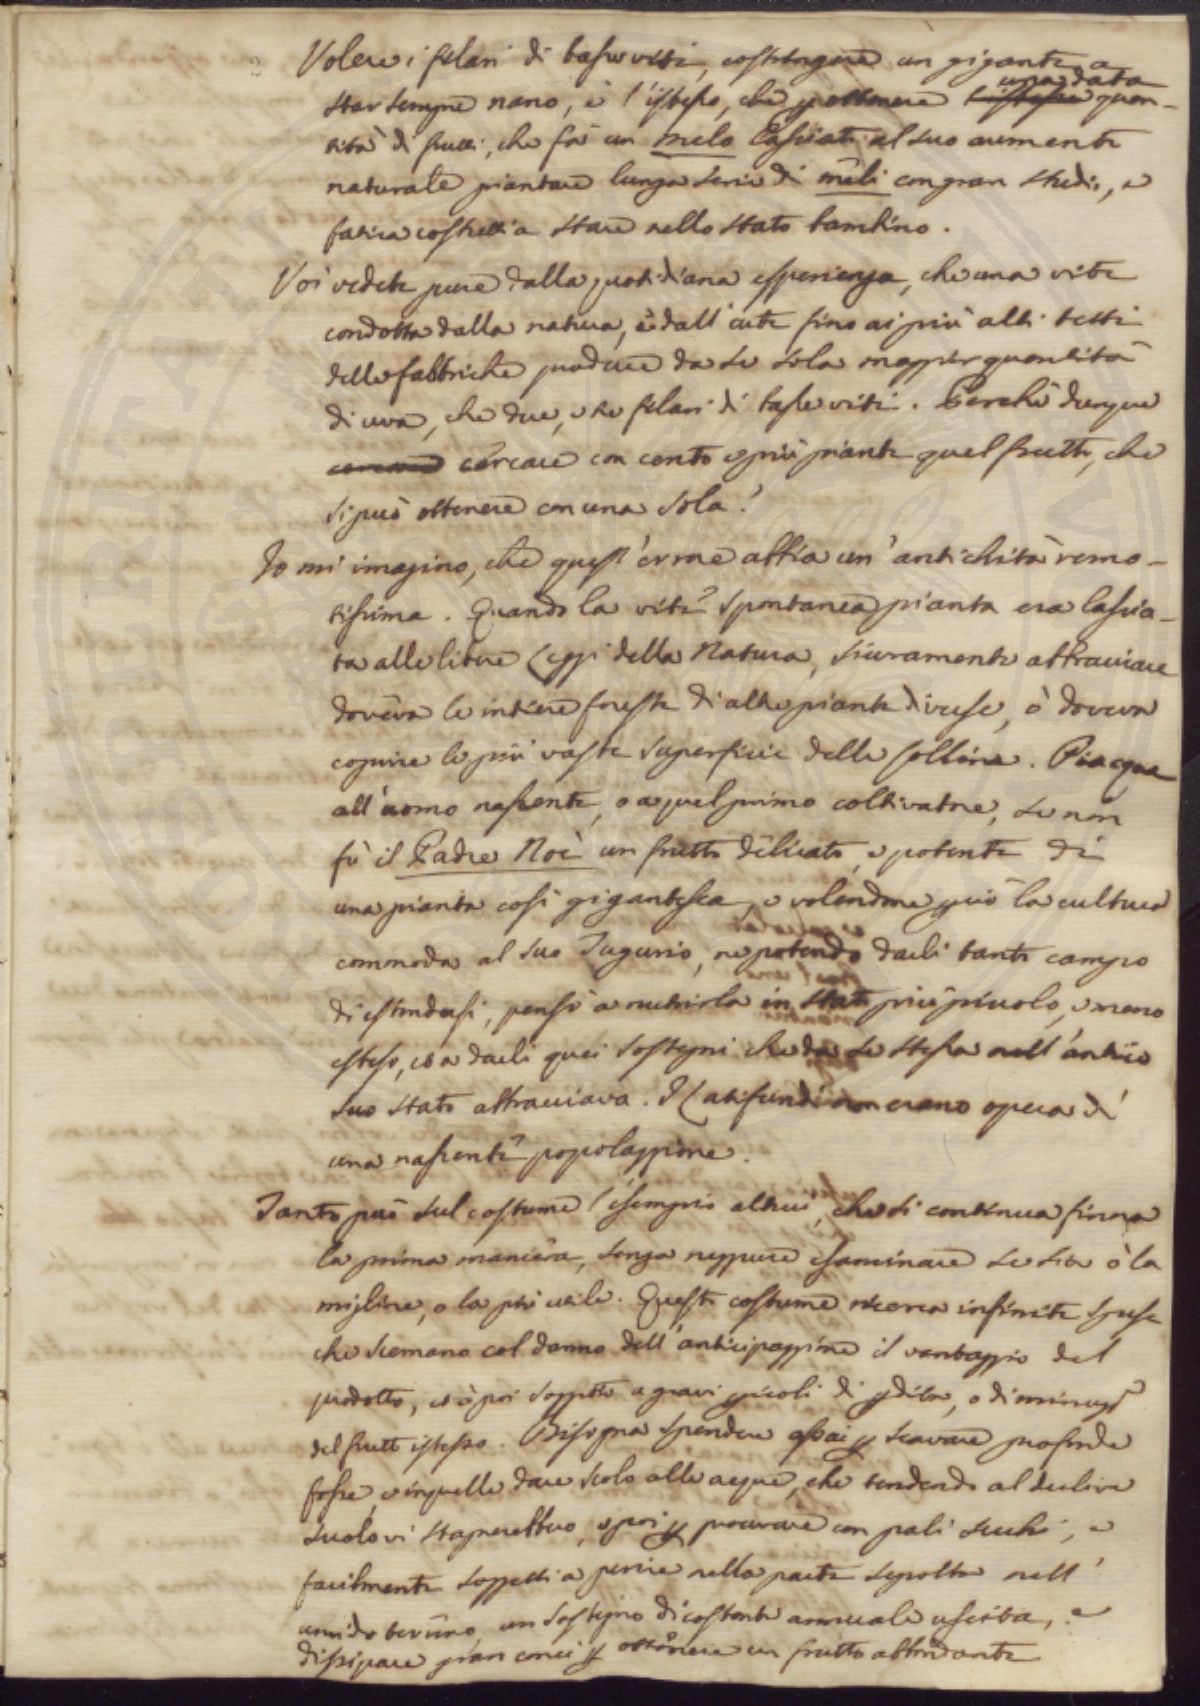 Volere i filari di basse viti, costringere un gigante a
star sempre nano, è l'istesso, che p ottenere l'istessa una data quan-
tità di frutti, che fà un melo lasciato al suo aumento
naturale piantare lunga serie di meli con gran studio, e
fatica costretti a stare nello stato bambino.
Voi vedete pure dalla quotidiana esperienza, che una vite
condotta dalla natura, e dall'arte fino ai più alti tetti
delle fabbriche produce da se sola maggior quantità
di uva, che due, o tre filari di basse viti. Perchè dunque
cercare cercare con cento e più piante quel frutto, che
si può ottenere con una sola?
Io mi imagino, che quest'errore abbia un'antichità remo-
tissima. Quando la vite spontanea pianta era lascia-
ta alle libere Leggi della Natura, sicuramente abbracciare
doveva le intiere foreste di altre piante diverse, ò doveva
coprire le più vaste superficie delle Colline. Piacque
all'uomo nascente, o a quel primo coltivatore, se non
fù il Padre Noè un frutto delicato, e potente di
una pianta così gigantesca, e volendone più la cultura
commoda al suo Tugurio, ne potendo darli tanto campo
di estendersi, pensò a nutrirla in stato più piccolo, e meno
esteso, et a darli quei sostegni che da se stessa nell'antico
suo stato abbracciava. I Latifundi non erano opera di
una nascente popolazione.
Tanto può sul costume l'esempio altrui, che si continua finora
la prima maniera, senza neppure esaminare se sia ò la
migliore, o la più utile. Questo costume ricerca infinite spese
che scemano col danno dell'anticipazione il vantaggio del
prodotto, et è poi soggetto a gravi pericoli di pdita, o diminuze
del frutto istesso. Bisogna spendere assai p scavare profonde
fosse, e in quelle dare scolo alle acque, che tendendo al declive
suolo vi stagnerebbero, e poi p procurare con pali secchi, e
facilmente soggetti a perire nella parte sepolta nell'
umido terreno, un sostegno di costante annuale uscita, e
dissipare gran conci p ottenere un frutto abbondante